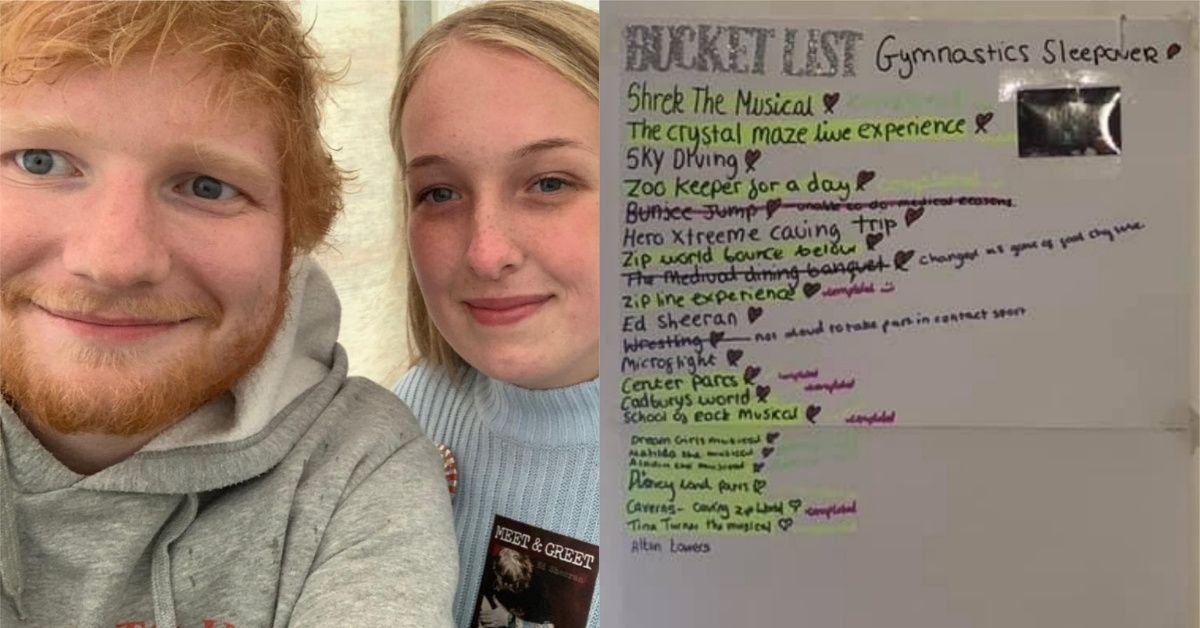 MEET & GREET
Ed Sheeran
BUCKET LIST Gymnastics Sleepover
Shrek The Musical
The crystal maze live experience
Sky Diving
Zoo keeper for a day completed
Bunjee Jump unable to do medical reasons
Hero Xtreeme caving trip
Zip world bounce below
The Medival dining banquet changed as game of
Zip line experience completed
Ed Sheeran
Wrestling not aloud to take part in contact sport
Microflight
Center Parcs completed
Cadburys world completed
School of Rock Musical completed
Dream Girls musical
Matilda the musical
Aladin the musical
Disney land paris
Caverns- Caving zip world completed
Tina Turner the musical
Alton Towers